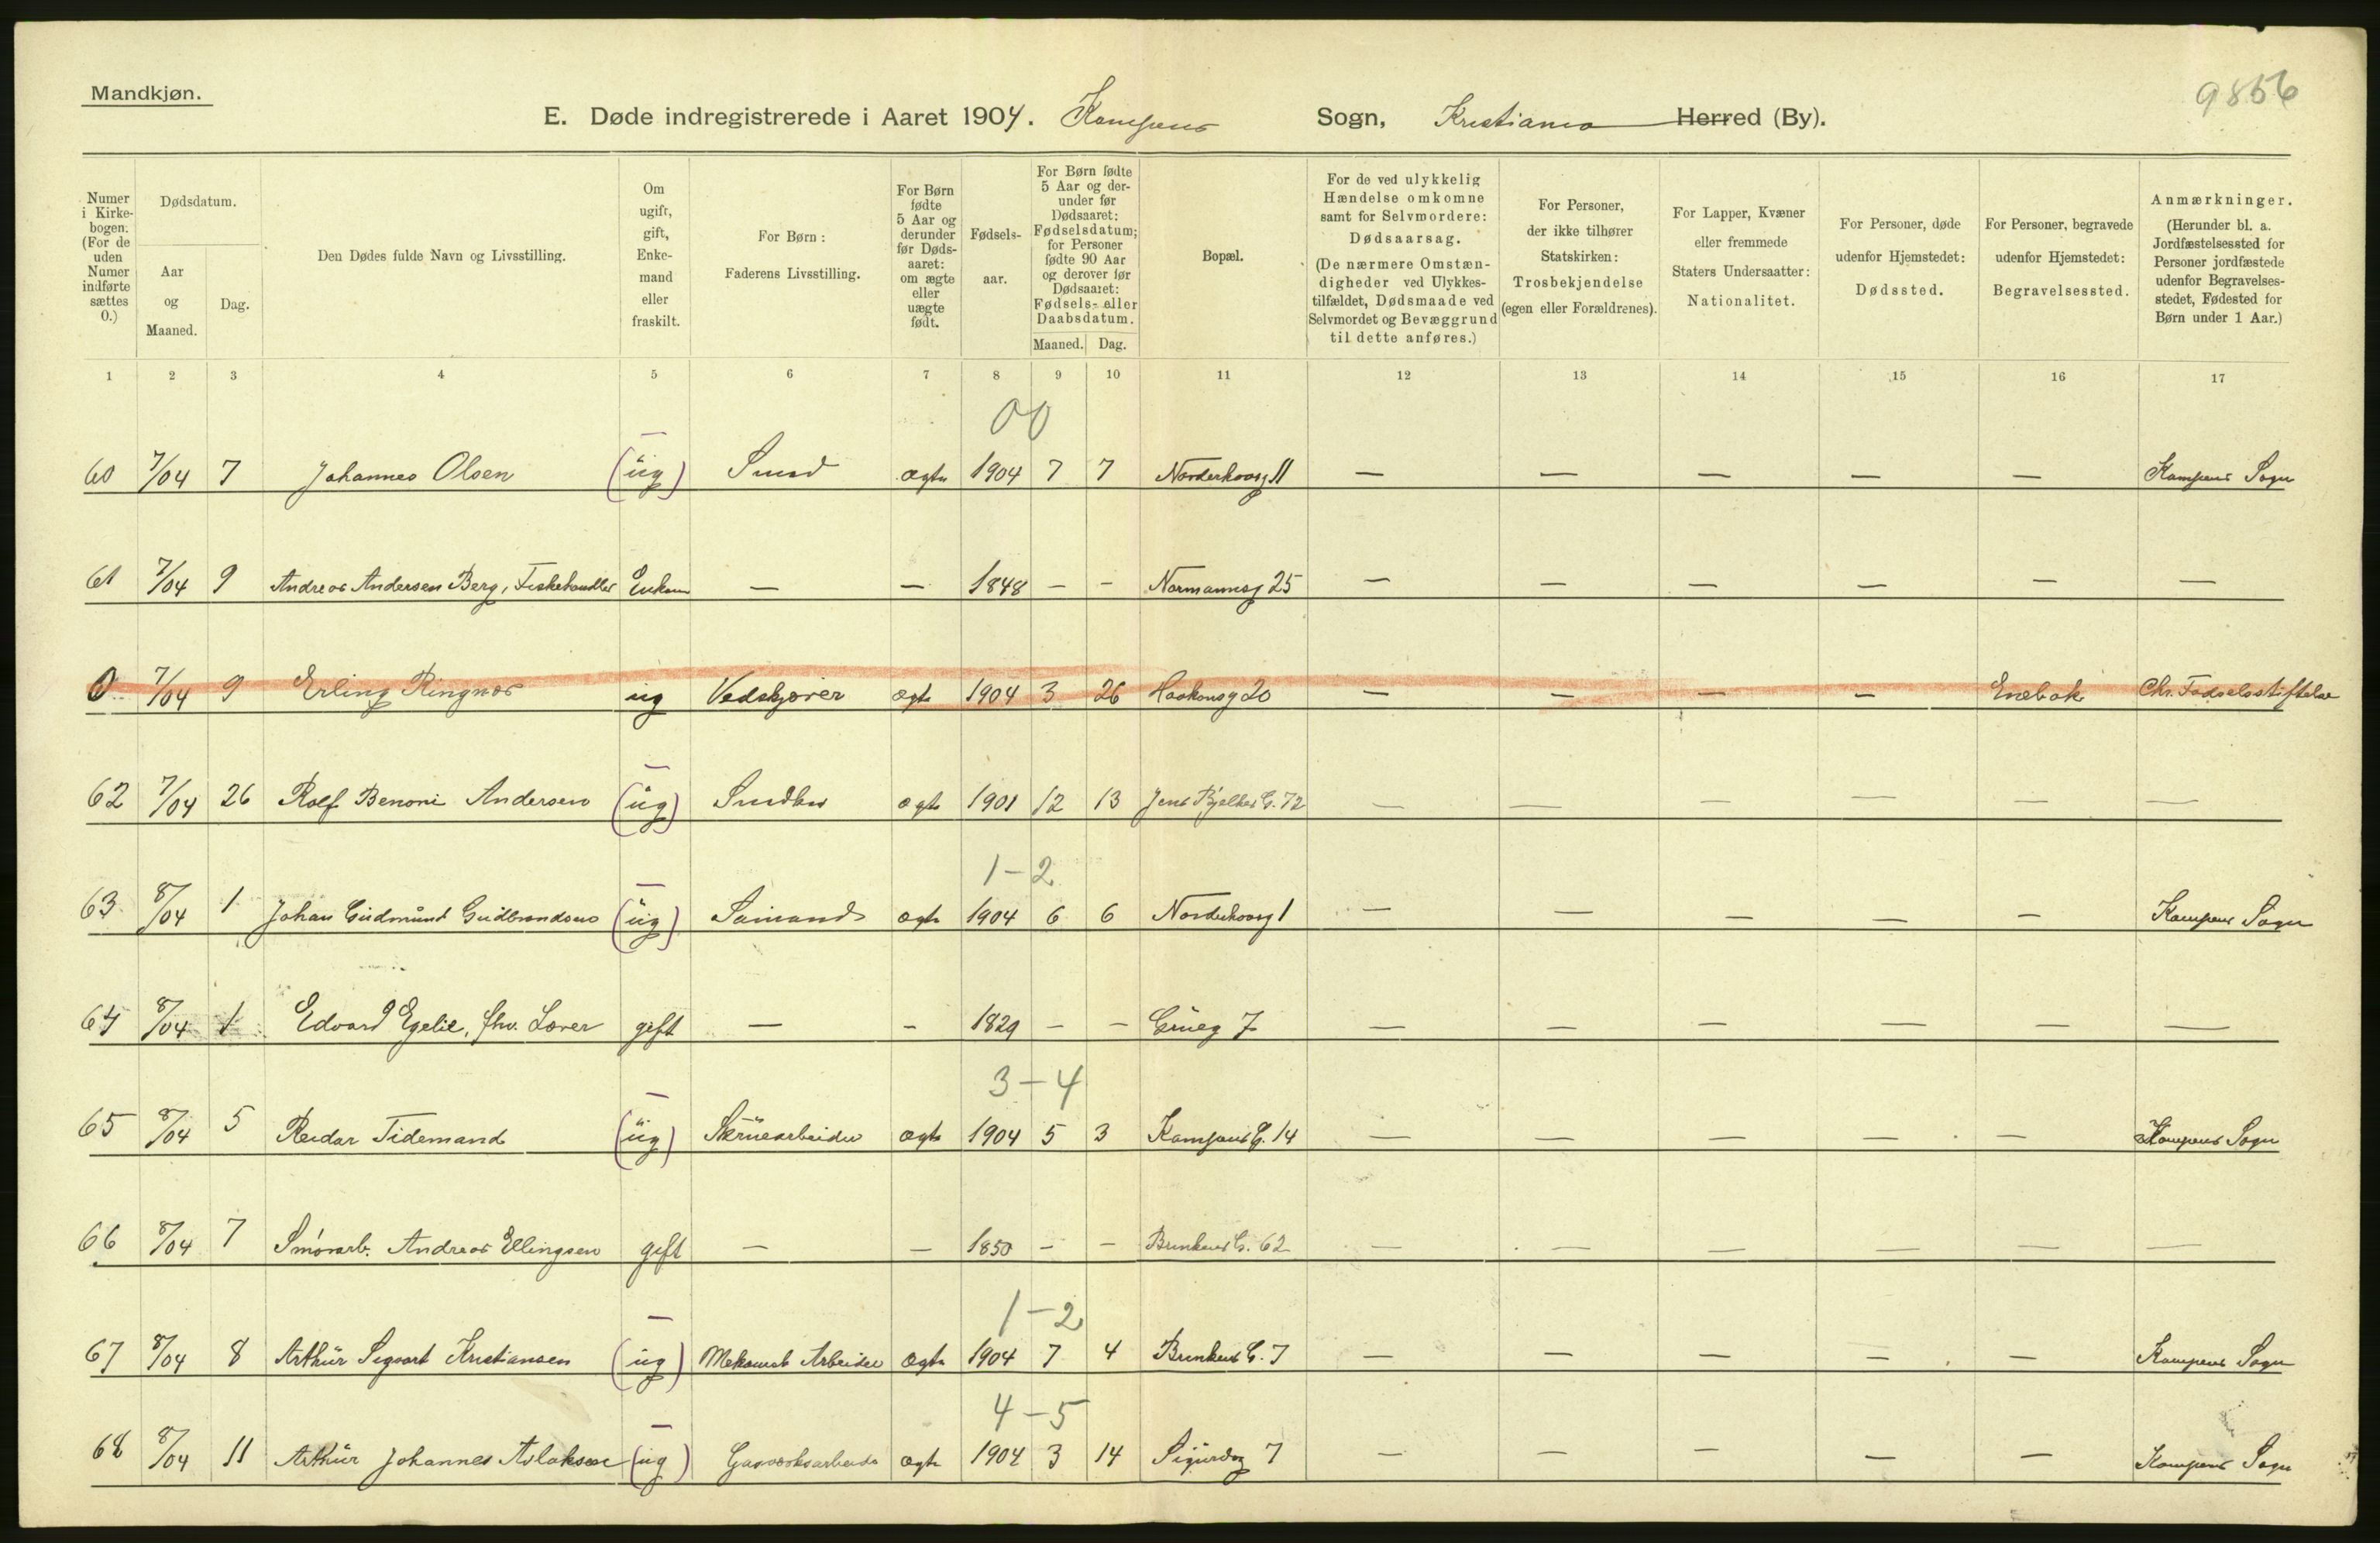 Mandkjøn.
9856
E. Døde indregistrerede i Aaret 1904. Kampens Sogn, Kristiania Herred (By).
Numer i Kirkebogen. (For de uden Numer indførte sættes 0.)
Dødsdatum.
Aar og Maaned.
Dag.
Den Dødes fulde Navn og Livsstilling.
Om ugift, gift, Enkemand eller fraskilt.
For Børn: Faderens Livsstilling.
For Børn fødte 5 Aar og derunder før Dødsaaret: om ægte eller uægte født.
Fødselsaar.
For Børn fødte 5 Aar og derunder før Dødsaaret: Fødselsdatum; for Personer fødte 90 Aar og derover før Dødsaaret: Fødsels- eller Daabsdatum.
Maaned. Dag.
Bopæl.
For de ved ulykkelig Hændelse omkomne samt for Selvmordere: Dødsaarsag. (De nærmere Omstændigheder ved Ulykkestilfældet, Dødsmaade ved Selvmordet og Bevæggrund til dette anføres.)
For Personer, der ikke tilhører Statskirken: Trosbekjendelse (egen eller Forældrenes).
For Lapper, Kvæner eller fremmede Staters Undersaatter: Nationalitet.
For Personer, døde udenfor Hjemstedet: Dødssted.
For Personer, begravede udenfor Hjemstedet: Begravelsessted.
Anmærkninger. (Herunder bl. a. Jordfæstelsessted for Personer jordfæstede udenfor Begravelsesstedet, Fødested for Børn under 1 Aar.)
1 2 3 4 5 6 7 8 9 10 11 12 13 14 15 16 17
00
60 7/04 7 Johannes Olsen (ug) Smed ægte 1904 7 7 Norderhovsg 11 — — — — — Kampens Sogn
61 7/04 9 Andreas Andersen Berg, Fiskehandler Enkem — — 1848 — — Normannsg 25 — — — — — —
0 7/04 9 Erling Ringnæs ug Vedskjærer ægte 1904 3 26 Haakonsg 20 — — — — Enebak Chr. Fødselsstiftelse
62 7/04 26 Rolf Benoni Andersen (ug) ægte 1901 12 13 Jens Bjelkes G. 72 — — — — — —
1-2
63 8/04 1 Johan Gudmund Gudbrandsen (ug) ægte 1904 6 6 Norderhovsg 1 — — — — — Kampens Sogn
64 8/04 1 Edvard Egelie, fhv. Lærer gift — — 1829 — — Grueg 7 — — — — — —
3-4
65 8/04 5 Reidar Tidemand (ug) Skruearbeider ægte 1904 5 3 Kampens G. 14 — — — — — Kampens Sogn
66 8/04 7 Smørarb. Andreas Ellingsen gift — — 1850 — — Brinkens G. 62 — — — — — —
1-2
67 8/04 8 Arthur Sigvart Kristiansen (ug) Mekanisk Arbeider ægte 1904 7 4 Brinkens G. 7 — — — — — Kampens Sogn
4-5
68 8/04 11 Arthur Johannes Aslaksen (ug) Gasværksarbeider ægte 1904 3 14 Sigurdsg 7 — — — — — Kampens Sogn